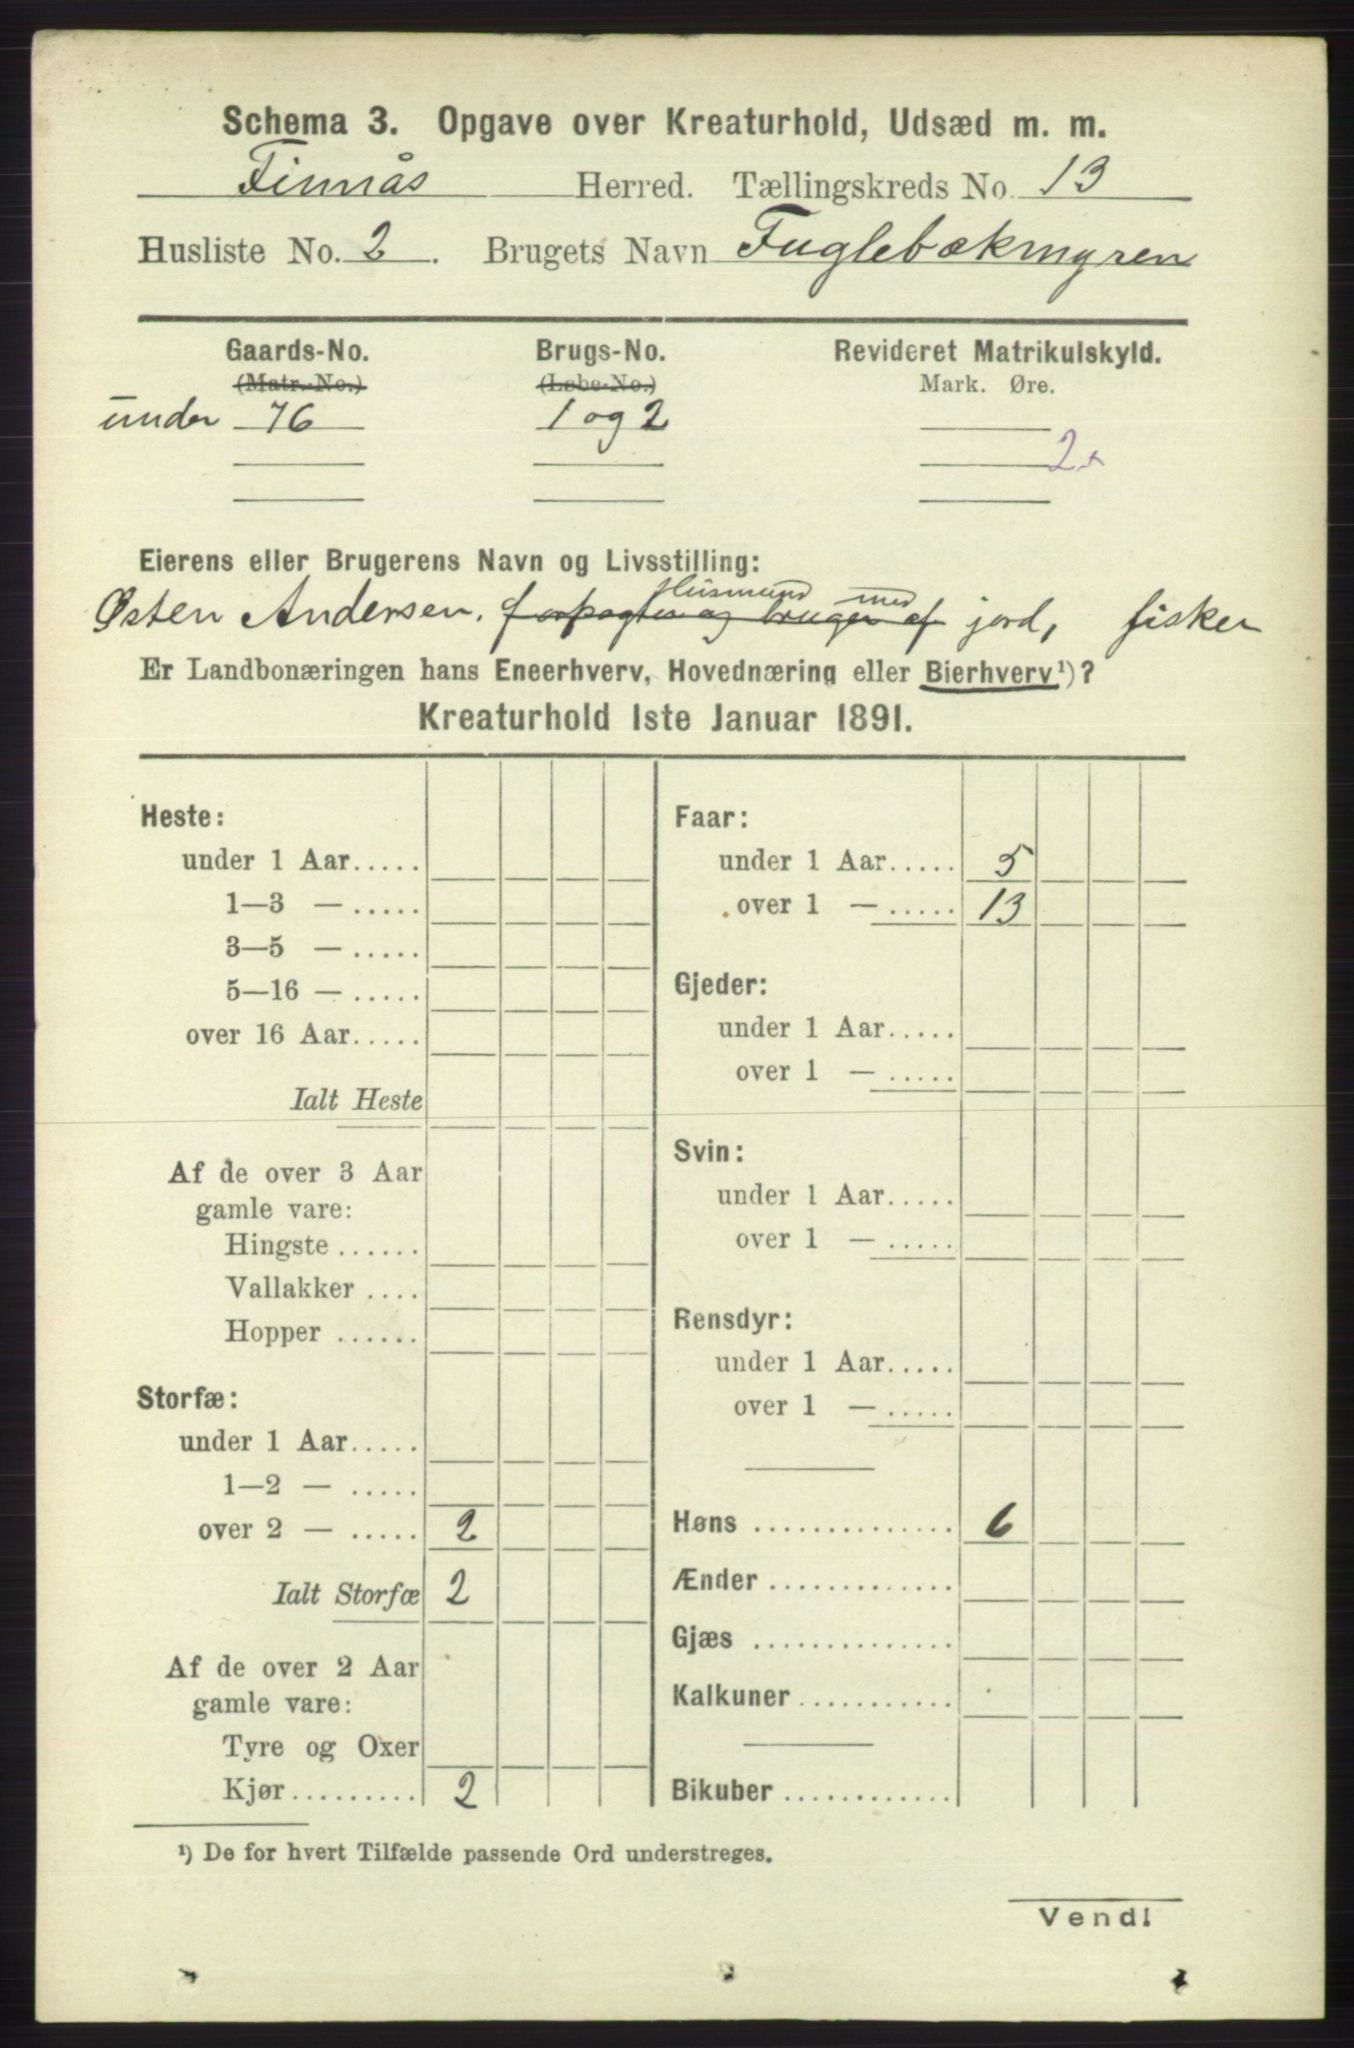 Schema 3. Opgave over Kreaturhold, Udsæd m. m.
Finnås Herred. Tællingskreds No. 13
Husliste No. 2. Brugets Navn Fuglebækmyren
Gaards-No. Brugs-No. Revideret Matrikulskyld.
(Matr.-No.) (Løbe-No.) Mark. Øre.
under 76 1 og 2
2
Eierens eller Brugerens Navn og Livsstilling:
Husmand med
Østen Andersen, forpagter og bruger af jord, fisker
Er Landbonæringen hans Eneerhverv, Hovednæring eller Bierhverv¹)?
Kreaturhold 1ste Januar 1891.
Heste:
under 1 Aar.....
1—3 — .....
3—5 — .....
5—16 — .....
over 16 Aar.....
Ialt Heste
Af de over 3 Aar
gamle vare:
Hingste ......
Vallakker ....
Hopper ......
Storfæ:
under 1 Aar.....
1—2 — .....
over 2 — ..... 2
Ialt Storfæ 2
Af de over 2 Aar
gamle vare:
Tyre og Oxer
Kjør......... 2
Faar:
under 1 Aar..... 5
over 1 — ..... 13
Gjeder:
under 1 Aar.....
over 1 — .....
Svin:
under 1 Aar.....
over 1 — .....
Rensdyr:
under 1 Aar.....
over 1 — .....
Høns .............. 6
Ænder .............
Gjæs ..............
Kalkuner ...........
Bikuber ............
¹) De for hvert Tilfælde passende Ord understreges.
Vend!